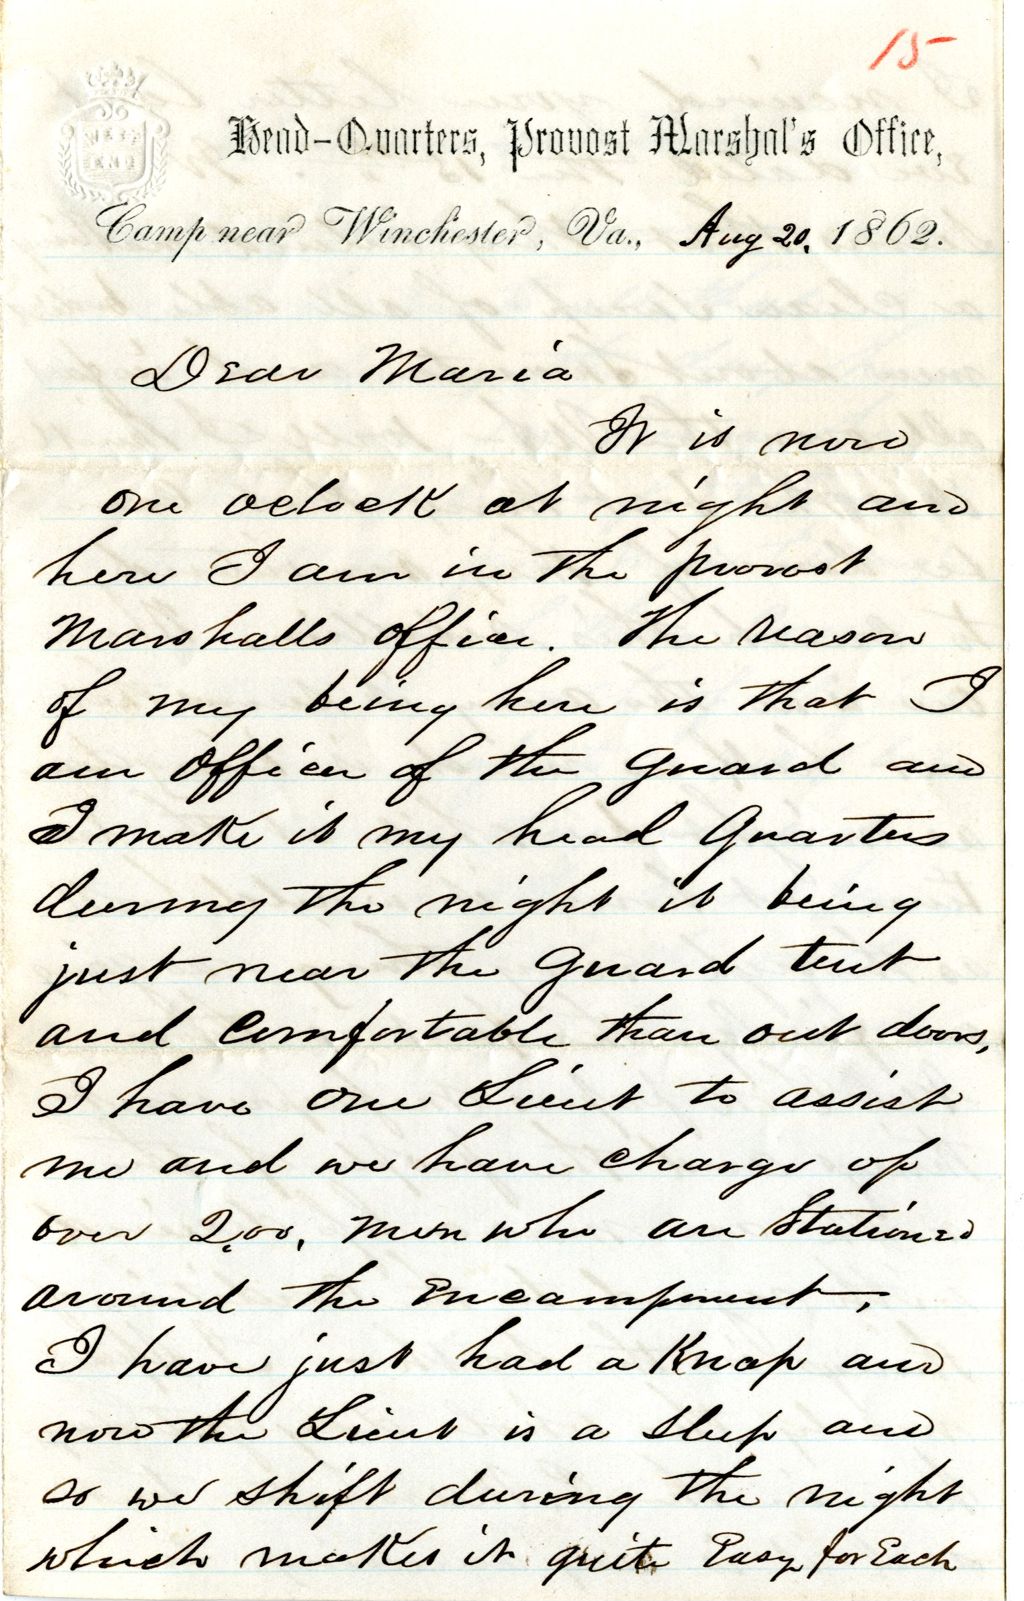 15
WEST
END
Head-Quarters, Provost Marshal's Office,
Camp near Winchester, Va., Aug 20, 1862.
Dear Maria
It is now
one oclock at night and
here I am in the provost
Marshalls office. The reason
of my being here is that I
am Officer of the Guard and
I make it my head Quarters
during the night it being
just near the Guard tent
and Comfortable than out doors,
I have one Lieut to assist
me and we have charge of
over 2,00, men who are Stationed
around the Encampment,
I have just had a Knap and
now the Lieut is a sleep and
so we shift during the night
which makes it quite Easy for Each